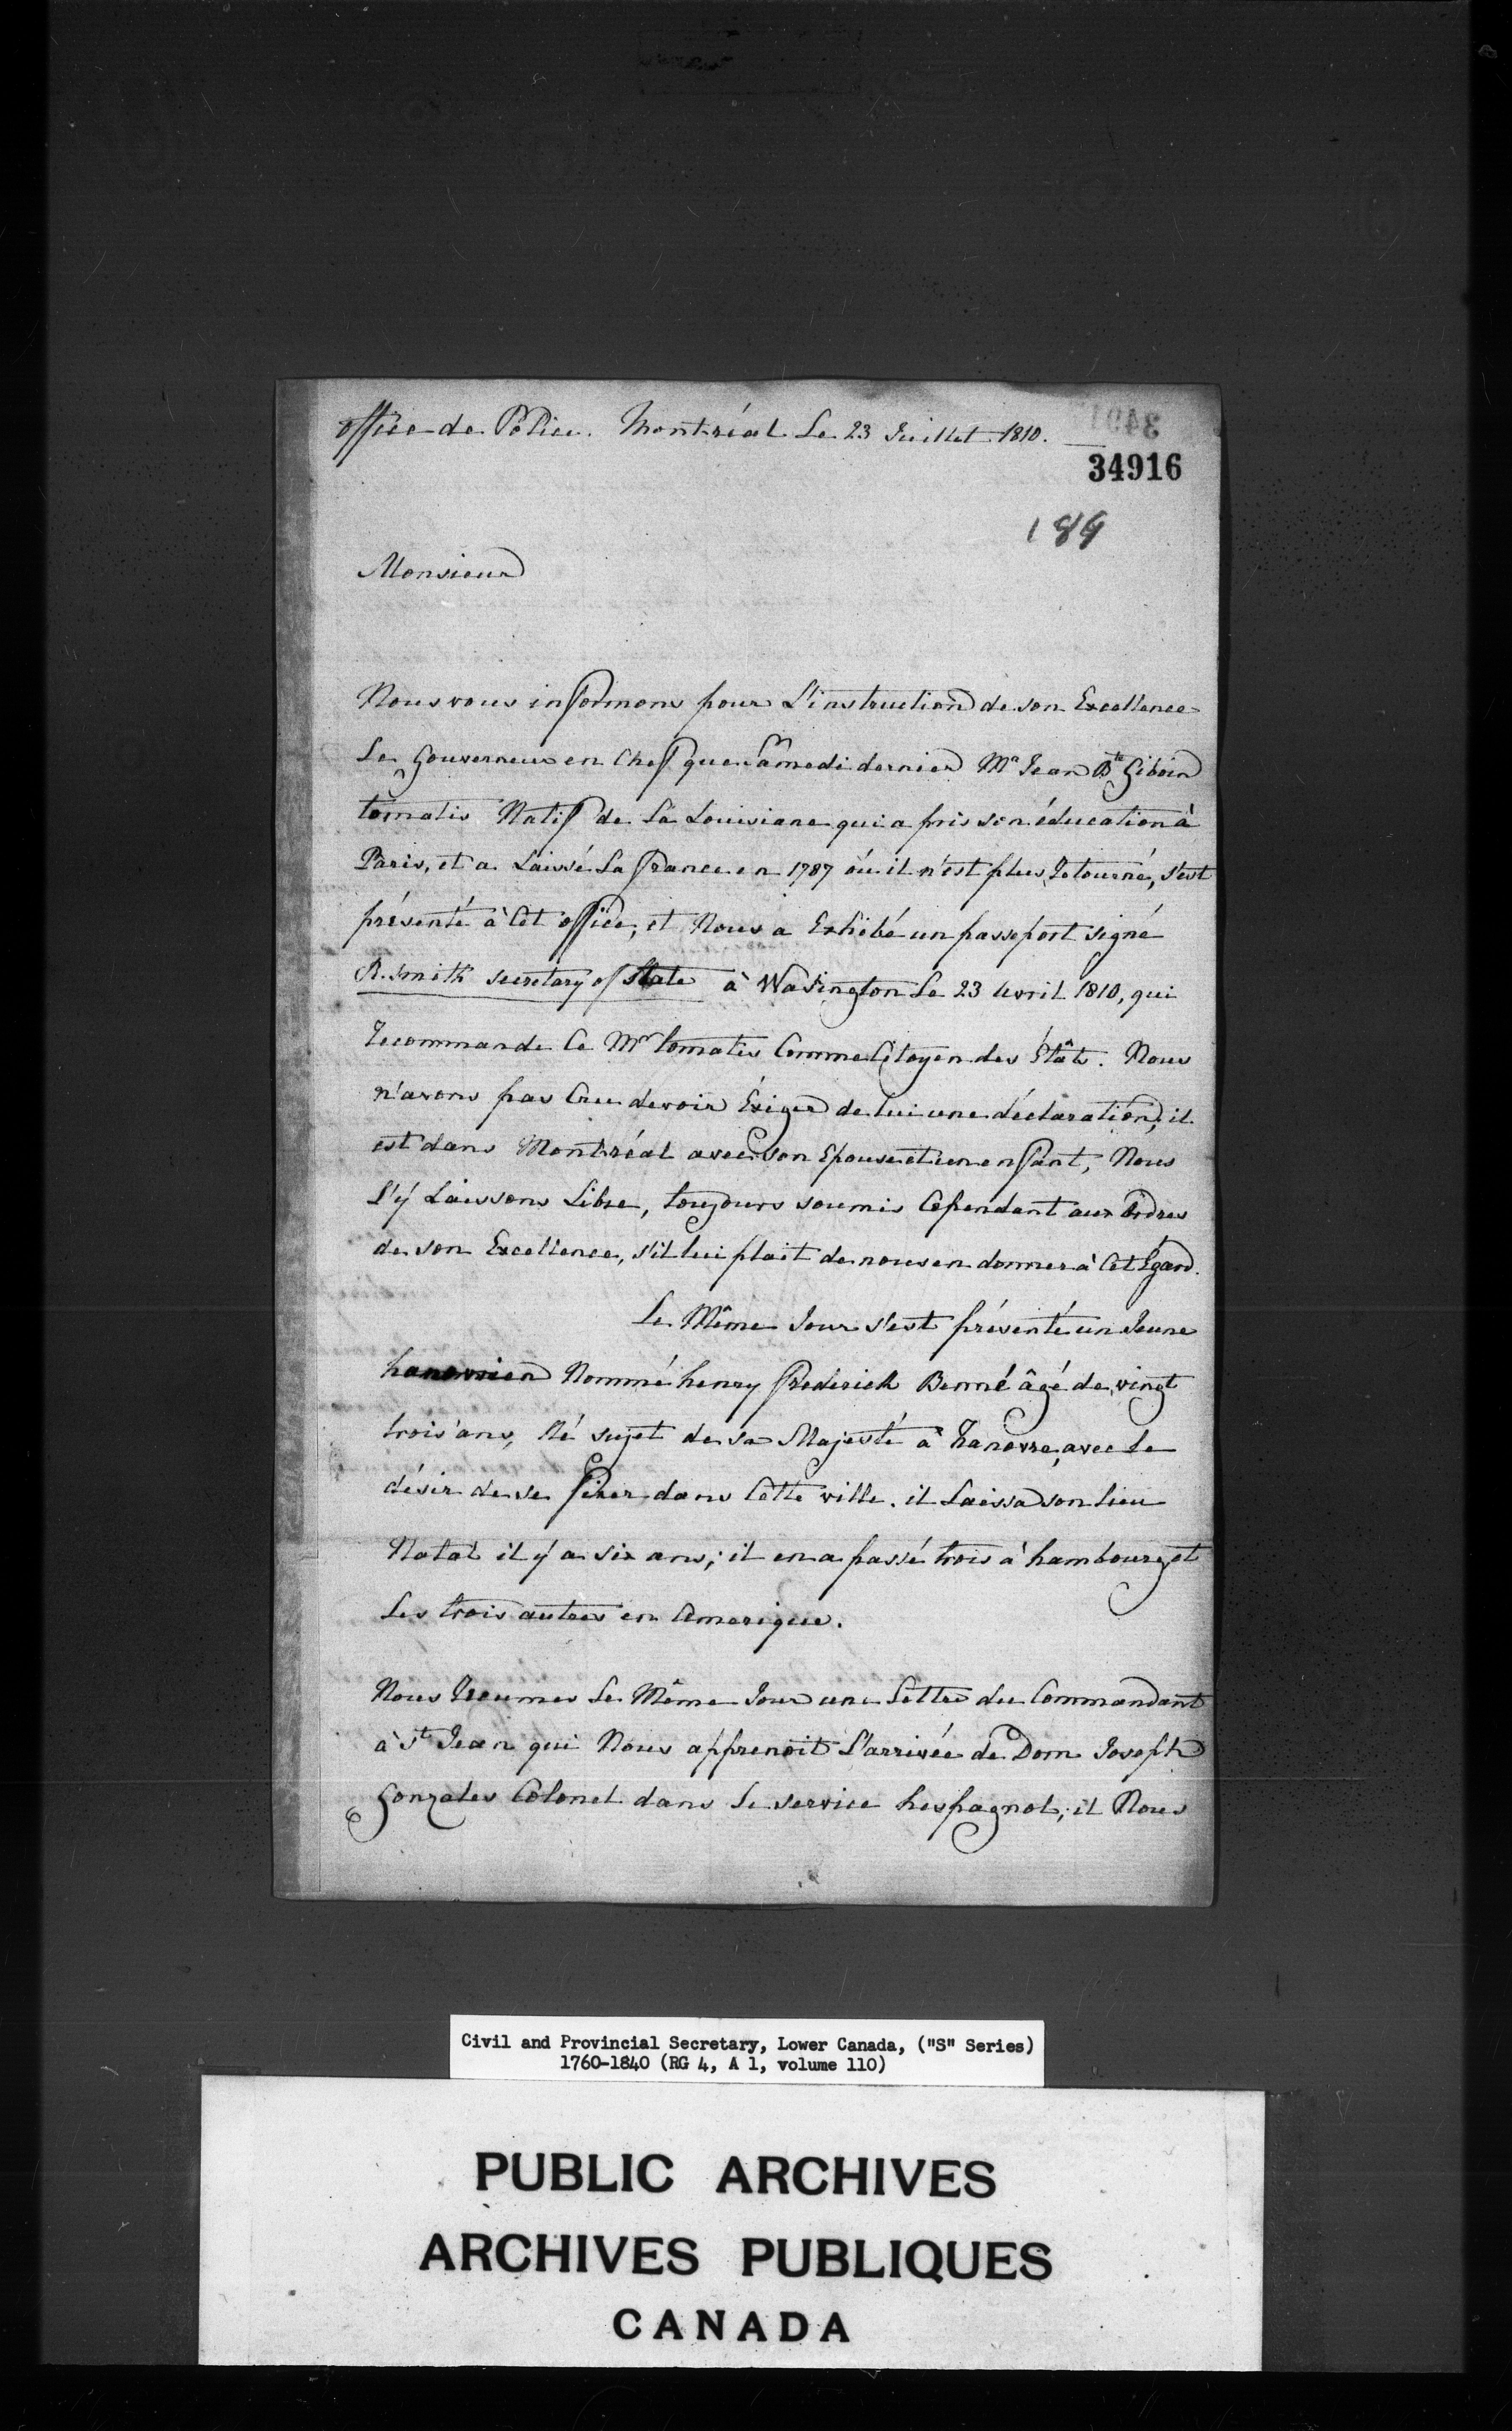 office de Police. Montréal Le 23 Juillet 1810.
34916
189
Monsieur
Nous vous informons pour L'instruction de son Excellence
Le Gouverneur en Chef que Samedi dernier Mr Jean Bte Giboin
tomatis Natif de La Louisiane qui a pris son éducation à
Paris, et a Laissé La france en 1787 où il n'est plus Retourné, s'est
présenté à Cet office, et Nous a Exhibé un passeport signé
R. Smith secretary of state à Wasington Le 23 Avril 1810, qui
Recommande Ce Mr tomatis Comme Citoyen des États. Nous
n'avons pas Cru devoir Éxiger de lui une déclaration, il
est dans Montréal avec son Epouse et un enfant, Nous
l'y Laissons Libre, toujours soumis Cependant aux Ordres
de son Excellence, s'il lui plait de nous en donner à Cet Égard.
Le Même Jour s'est présenté un Jeune
hanovrien Nommé henry frederick Benné âgé de vingt
trois ans, Né sujet de sa Majesté à hanovre, avec le
désir de se fixer dans Cette ville. il Laissa son lieu
Natal il y a six ans; il en a passé trois à hambourg et
Les trois autres en Amerique.
Nous Reçumes Le Même Jour une Lettre du Commandant
à St Jean qui Nous apprenoit L'arrivée de Dom Joseph
Gonzales Colonel dans le service hespagnol; il Nous
Civil and Provincial Secretary, Lower Canada, ("S" Series)
1760-1840 (RG 4, A 1, volume 110)
PUBLIC ARCHIVES
ARCHIVES PUBLIQUES
CANADA